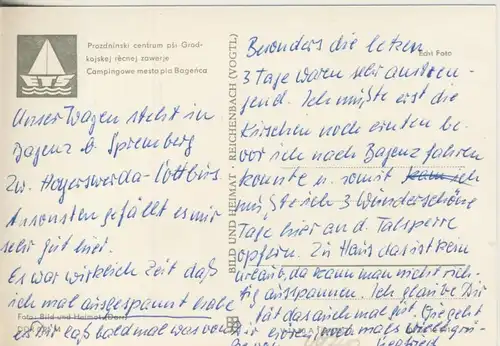 Prazdninski centrum pśi Grod-
kojskej rěcnej zawerje
Campingowe mesta pla Bageńca
Unser Wagen steht in
Bagenz b. Spremberg
Zw. Hoyerswerda-Cottbus
Ansonsten gefällt es mir
sehr gut hier.
Es war wirklich Zeit daß
ich mal ausgespannt habe
Foto: Bild und Heimat
es mir laß bald mal was von
BILD UND HEIMAT · REICHENBACH (VOGTL)
Echt Foto
Besonders die letzen
3 Tage waren sehr anstren-
gend. Ich mußte erst die
Kirschen noch ernten be-
vor ich nach Bagenz fahren
konnte u. somit ich
mußte ich 3 wunderschöne
Tage hier an d. Talsperre
opfern. Zu Haus das ist kein
Urlaub, da kann man nicht rich-
tig ausspannen. Ich glaube Dir
tät das auch mal gut. Wie geht
Dir mal